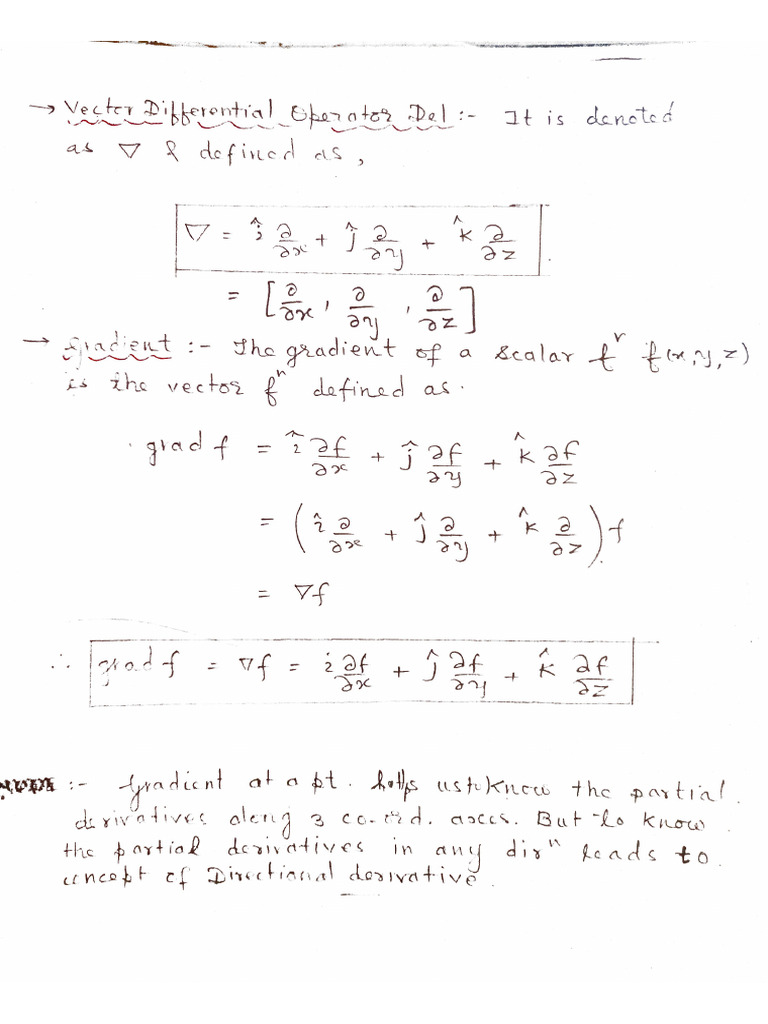 → Vector Differential Operator Del :- It is denoted
as ∇ & defined as,
∇ = î ∂/∂x + ĵ ∂/∂y + k̂ ∂/∂z .
= [∂/∂x , ∂/∂y , ∂/∂z]
→ Gradient :- The gradient of a scalar fⁿ f(x,y,z)
is the vector fⁿ defined as.
grad f = î ∂f/∂x + ĵ ∂f/∂y + k̂ ∂f/∂z
= (î ∂/∂x + ĵ ∂/∂y + k̂ ∂/∂z) f
= ∇f
∴ grad f = ∇f = i ∂f/∂x + ĵ ∂f/∂y + k̂ ∂f/∂z
:- Gradient at a pt. helps us to know the partial
derivatives along 3 co-ord. axes. But to know
the partial derivatives in any dirⁿ leads to
concept of Directional derivative.